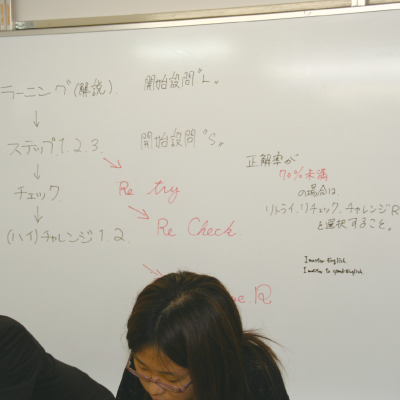 ラーニング(解説). 開始設問"L。
↓
ステップ1.2.3 開始設問"S。
↓
Re try
チェック
↓
Re Check.
(ハイ)チャレンジ1.2
e.R
正解率が
70%未満
の場合は
リトライ、リチェック、チャレンジR
を選択すること。
I master English.